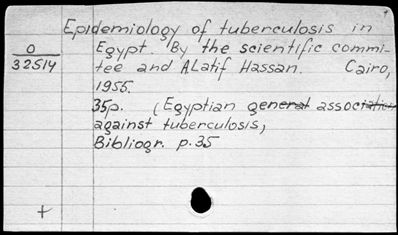 Epidemiology of tuberculosis in
O Egypt. By the scientific commi-
32514 tee and ALatif Hassan. Cairo,
1955.
35p. (Egyptian general association
against tuberculosis,
Bibliogr. p.35
+